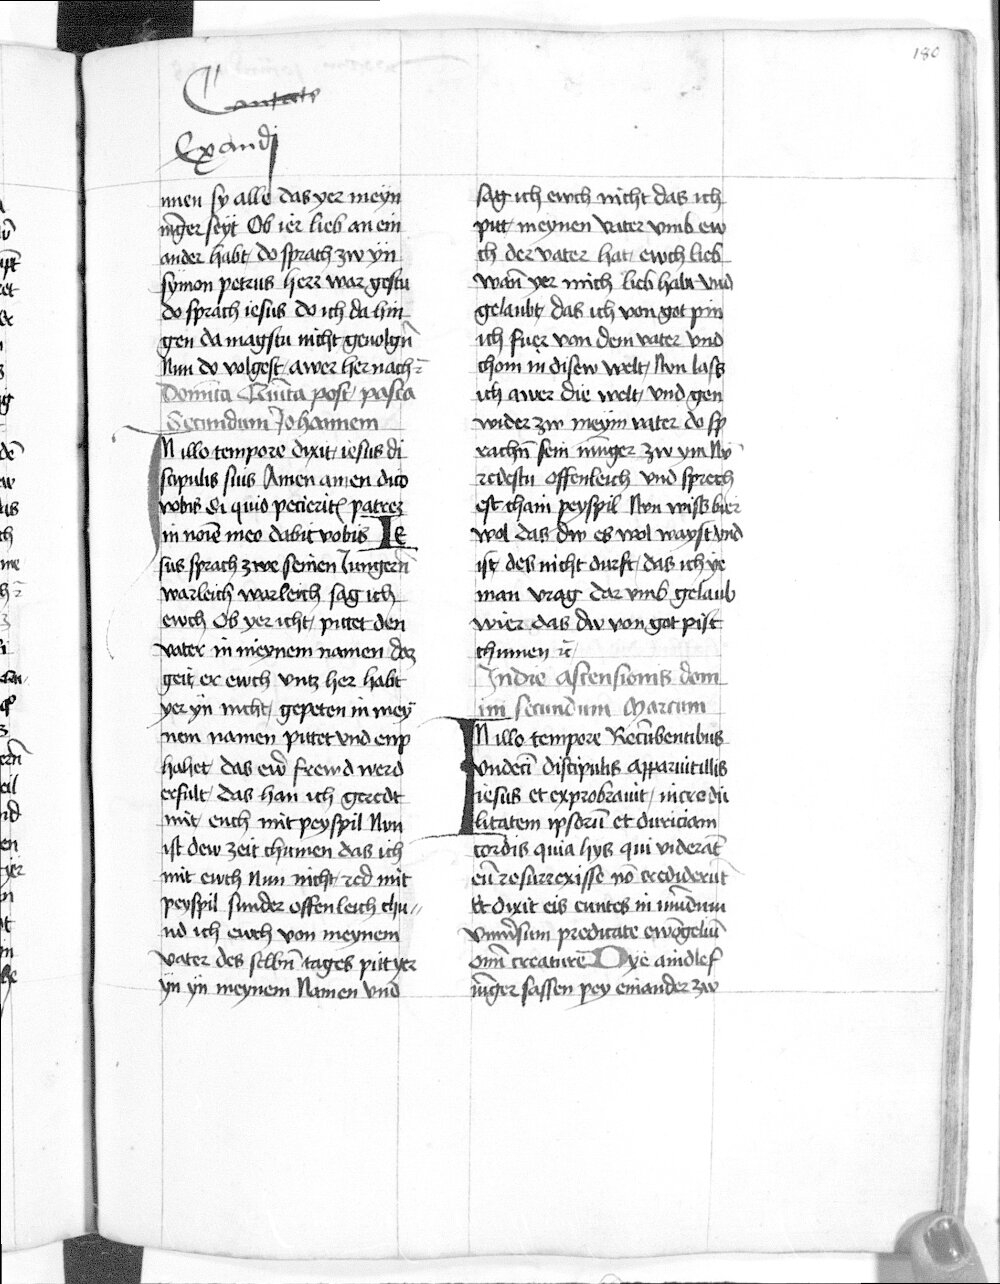 180
Cantate
Exaudi
nnen sy alle das yer meyn
iu̅ger seyt Ob ier lieb an ein
ander habt do sprach zw yn
symon petrus herr war gestu
do sprach iesus do ich da hin
gen da magstu nicht geuolgn̅
Nun do volgest awer her nach
Domi̅ca Qui̅ta post pasca
Secundum Johannem
In illo tempore dixit iesus di
scipulis suis Amen amen dico
vobis Si quid pecierit̅ patrem
in no̅i̅e meo dabit vobis IE
sus sprach zwe seinen Jungern̅
warleich warleich sag ich
ewch Ob yer icht pittet den
vater in meynem namen der
geit er ewch vntz her habt
yer yn nicht gepeten in mey
nem namen pittet vnd enp
hahet das ew̅ frewd werd
erfult das han ich geredt
mit euch mit peyspil Nun
ist dew zeit chumen das ich
mit ewch Nun nicht red mit
peyspil sunder offenleich chu
nd ich ewch von meynem
vater des selbn̅ tages pitt yer
yn yn meynem Namen vnd
sag ich ewch nicht das ich
pitt meynen vater vmb ew
ch der vater hat ewch lieb
wan̅ yer mich lieb habt vnd
gelaubt das ich von got pin
ich fuer von dem vater vnd
chom in disew welt Nun lass
ich awer die welt vnd gen
wider zw meym vater do sp
rachn̅ sein iu̅nger zw ym Nu̅
redestu offenleich vnd sprech
est chain peyspil Nun wiss bier
wol das dw es wol wayst vnd
ist des nicht durft das ich ye
man vrag dar vmb gelaub
wier das dw von got pist
chumen ⁊c̅
In die ascensionis dom
ini secundum Marcum
In illo tempore Recu̅bentibus
vndeci̅ discipulis apparuit illis
iesus et exprobrauit incredu
litatem ipsoru̅ et duriciam
cordis quia hys qui viderat̅
eu̅ resurrexisse no̅ crediderut̅
Et dixit eis euntes in mu̅dum
vniu̅sum predicate ewa̅geliu̅
om̅i creature̅ Dye aindlef
iu̅ger sassen pey einander zw